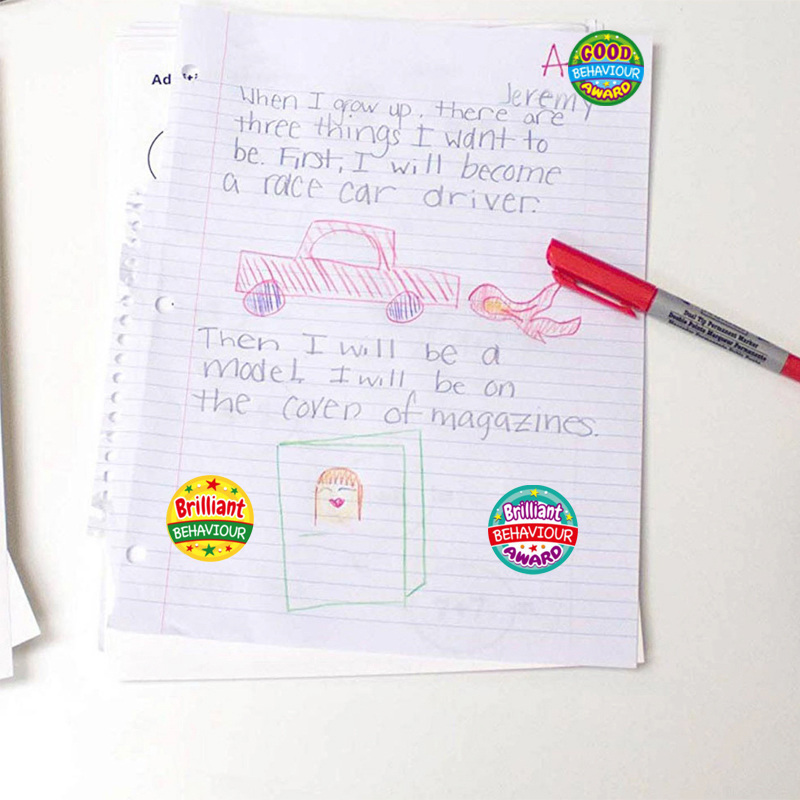 A
GOOD
BEHAVIOUR
AWARD
Jeremy
When I grow up, there are
three things I want to
be. First, I will become
a race car driver.
Then I will be a
model. I will be on
the cover of magazines.
Brilliant
BEHAVIOUR
Brilliant
BEHAVIOUR
AWARD
Dual Tip Permanent Marker
Ad